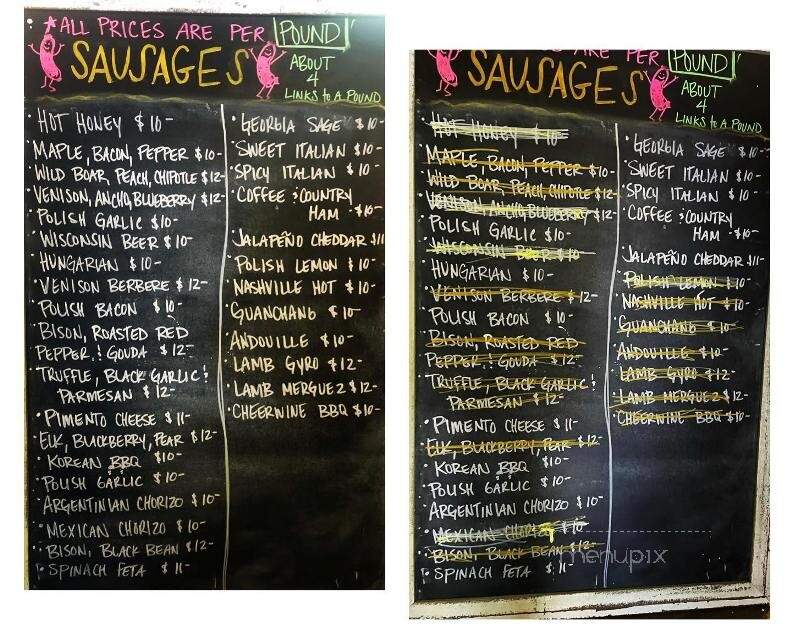 ALL PRICES ARE PER POUND
SAUSAGES
ABOUT
4
LINKS to A POUND
HOT HONEY $10-
MAPLE, BACON, PEPPER $10-
WILD BOAR, PEACH, CHIPOTLE $12-
VENISON, ANCHO, BLUEBERRY $12-
POLISH GARLIC $10-
WISCONSIN BEER $10-
HUNGARIAN $10-
VENISON BERBERE $12-
POLISH BACON $10-
BISON, ROASTED RED
PEPPER & GOUDA $12-
TRUFFLE, BLACK GARLIC &
PARMESAN $12-
PIMENTO CHEESE $11-
ELK, BLACKBERRY, PEAR $12-
KOREAN BBQ $10-
POLISH GARLIC $10-
ARGENTINIAN CHORIZO $10-
MEXICAN CHORIZO $10-
BISON, BLACK BEAN $12-
SPINACH FETA $11-
GEORGIA SAGE $10-
SWEET ITALIAN $10-
SPICY ITALIAN $10-
COFFEE & COUNTRY
HAM $10-
JALAPEÑO CHEDDAR $11
POLISH LEMON $10-
NASHVILLE HOT $10-
GUANCHANG $10-
ANDOUILLE $10-
LAMB GYRO $12-
LAMB MERGUEZ $12-
CHEERWINE BBQ $10-
ARE PER POUND
SAUSAGES
ABOUT
4
LINKS to A POUND
HOT HONEY $10
MAPLE, BACON, PEPPER $10-
WILD BOAR, PEACH, CHIPOTLE $12-
VENISON, ANCHO, BLUEBERRY $12-
POLISH GARLIC $10-
WISCONSIN BEER $10-
HUNGARIAN $10-
VENISON BERBERE $12-
POLISH BACON $10-
BISON, ROASTED RED
PEPPER & GOUDA $12-
TRUFFLE, BLACK GARLIC &
PARMESAN $12-
PIMENTO CHEESE $11-
ELK, BLACKBERRY, PEAR $12-
KOREAN BBQ $10-
POLISH GARLIC $10-
ARGENTINIAN CHORIZO $10-
MEXICAN CHORIZO $10-
BISON, BLACK BEAN $12-
SPINACH FETA $11-
GEORGIA SAGE $10-
SWEET ITALIAN $10-
SPICY ITALIAN $10-
COFFEE & COUNTRY
HAM $10-
JALAPEÑO CHEDDAR $11-
POLISH LEMON $10-
NASHVILLE HOT $10-
GUANCHANG $10-
ANDOUILLE $10-
LAMB GYRO $12-
LAMB MERGUEZ $12-
CHEERWINE BBQ $10-
menupix